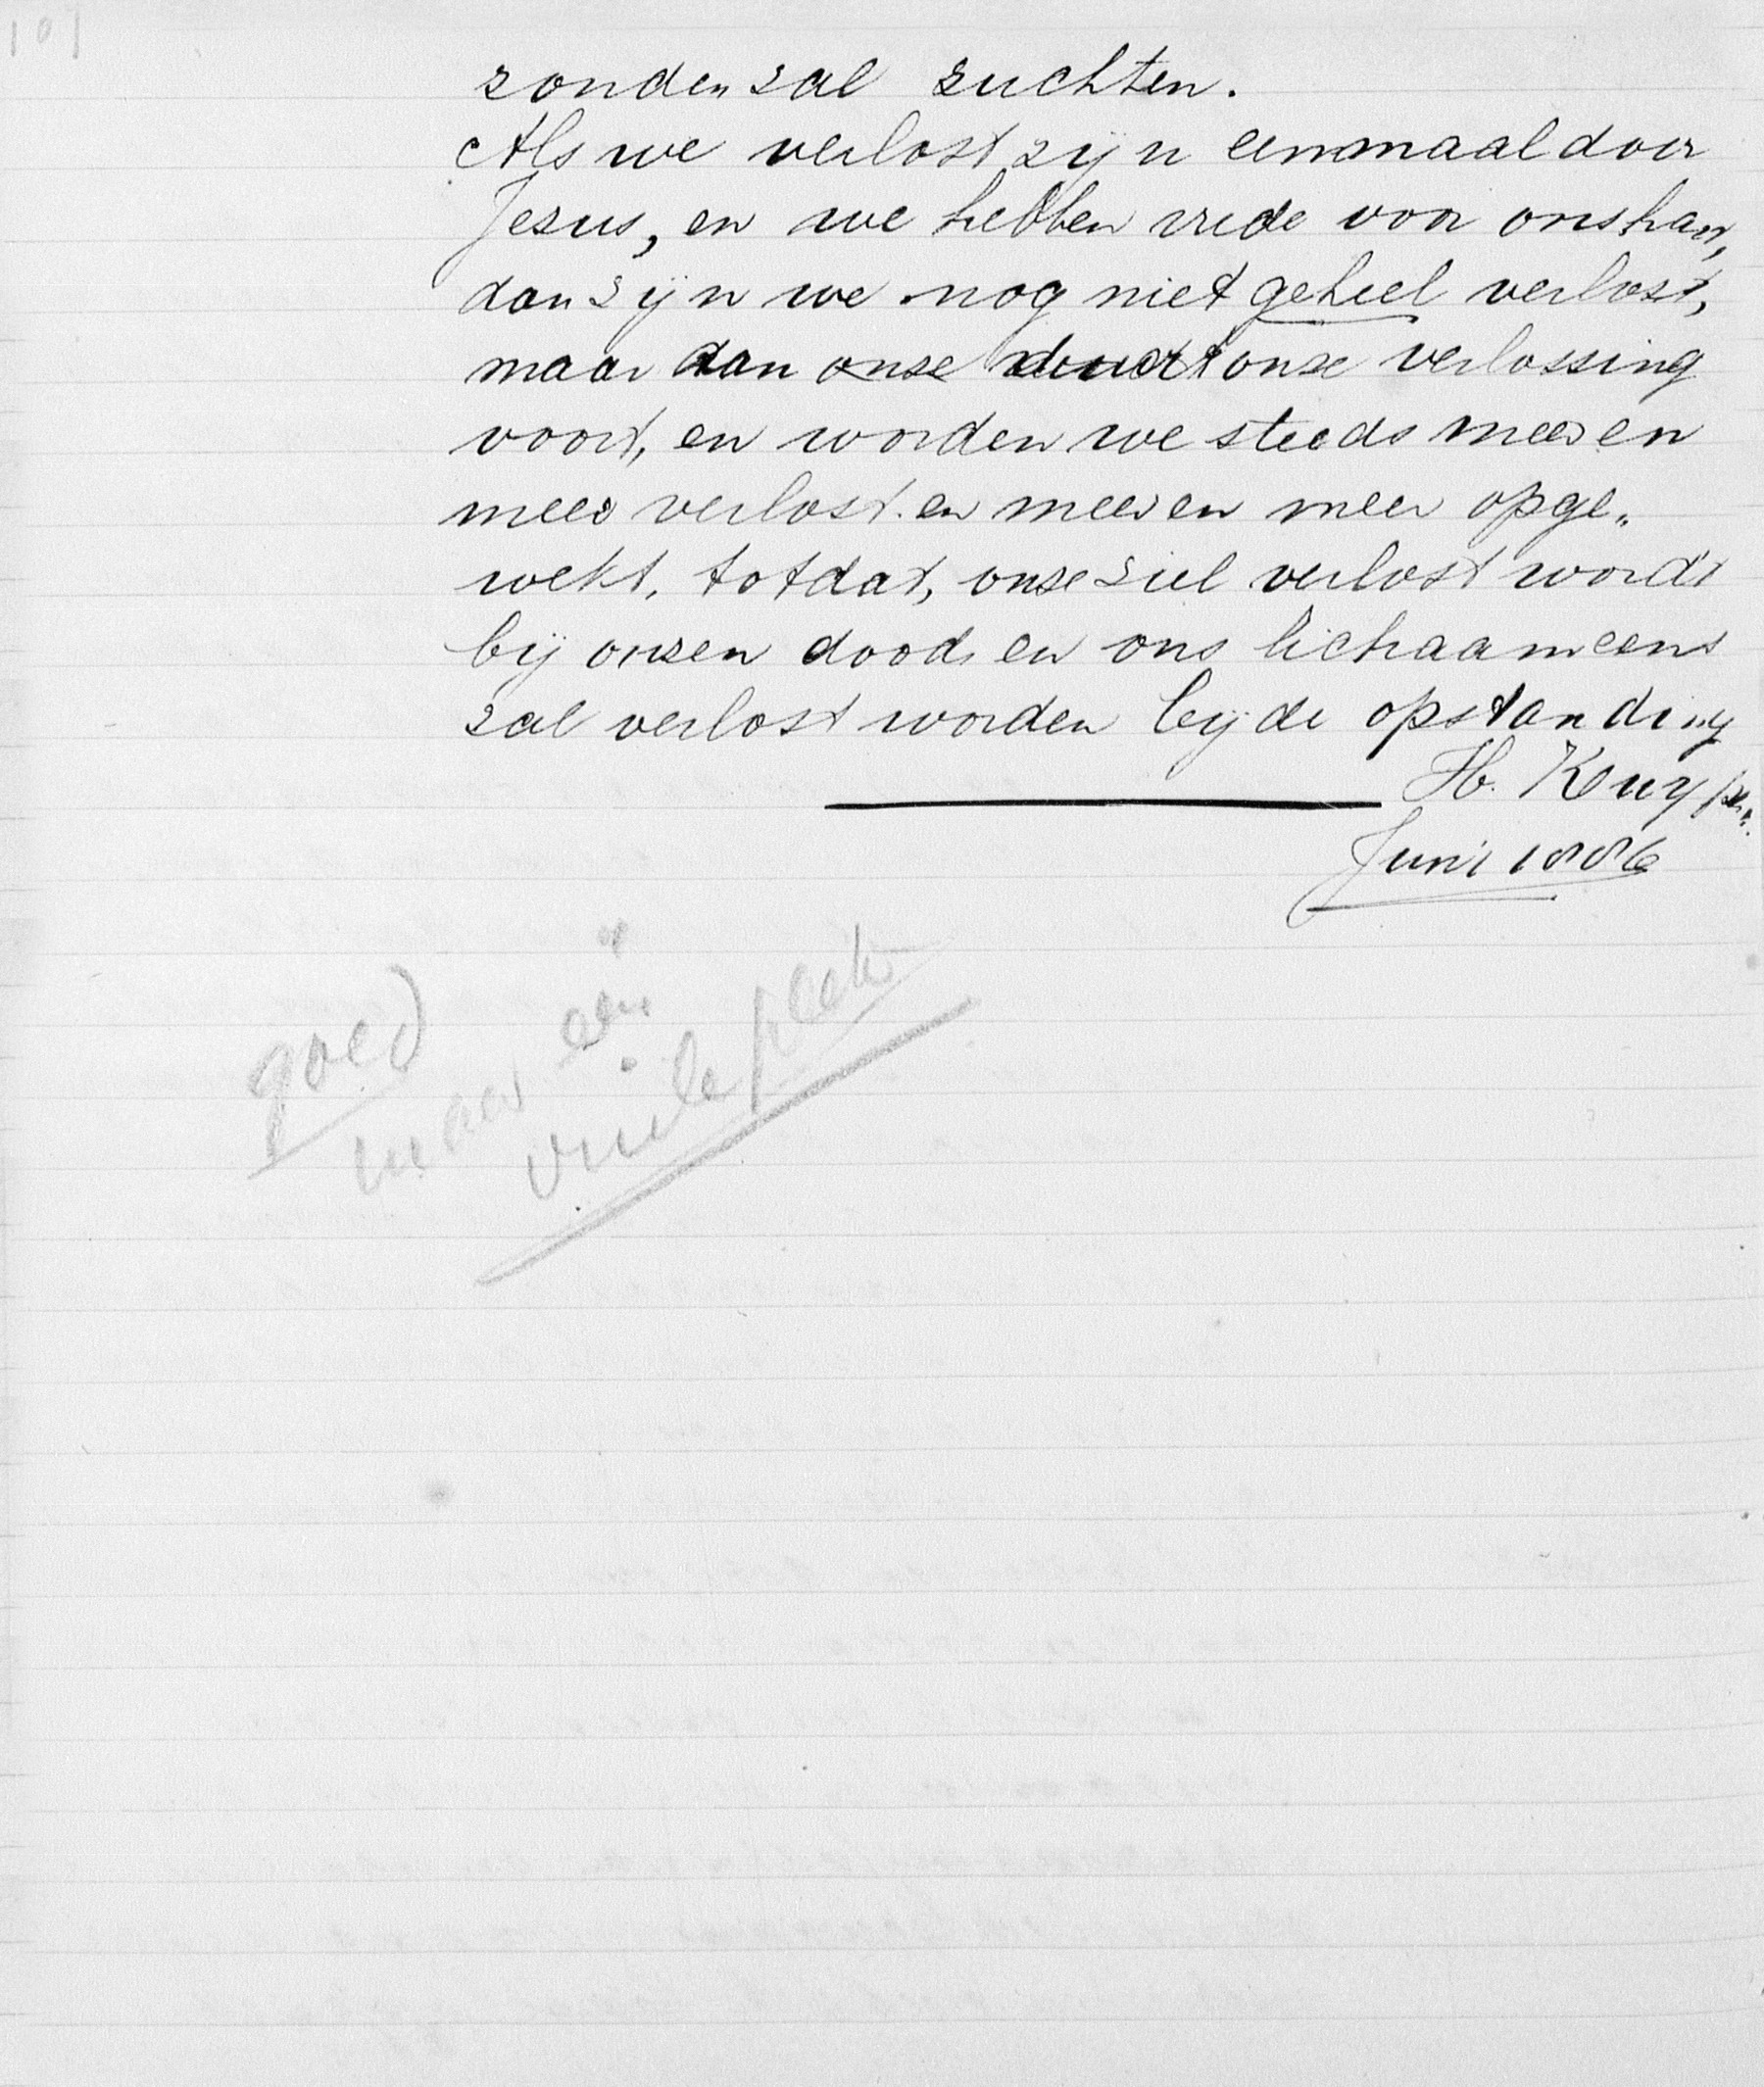 107
zonden zal zuchten.
Als we verlost zijn eenmaal door
Jezus, en we hebben vrede voor ons hart,
dan zijn we nog niet geheel verlost,
maar dan onze duurt onze verlossing
voort, en worden we steeds meer en
meer verlost en meer en meer opge„
wekt, totdat, onze ziel verlost wordt
bij onzen dood, en ons lichaam eens
zal verlost worden bij de opstanding
H. Kuyper.
Juni 1886
goed
maar één
vuile plek